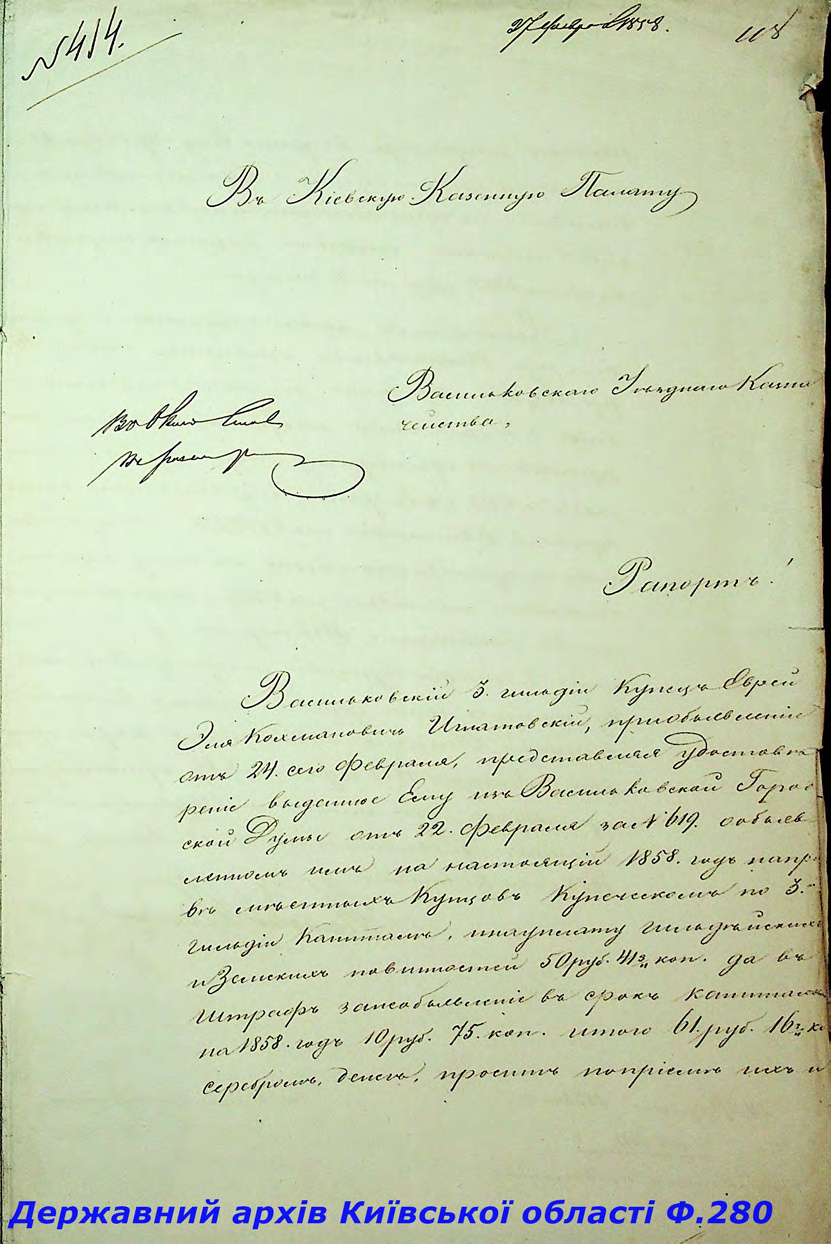 № 414.
27 февраля 1858.
118
Въ Кіевскую Казенную Палату
Васильковскаго Уѣзднаго Казна
чейства,
Рапортъ!
Васильковскій 3. гильдіи Купецъ Еврей
Эля Кохмановичъ Игнатовскій, приобъявленіи
отъ 24. сего Февраля, представляя удостовѣ
реніе выданное Ему изъ Васильковской Город
ской Думы отъ 22. Февраля за № 619. обобъяв
ленномъ имъ на настоящій 1858. годъ
въ мѣстныхъ Купцовъ Купеческомъ по 3.
гильдіи Капиталѣ, инауплату гильдейскихъ
и Земскихъ повинностей 50 руб. 41 2/4 коп. да въ
Штрафъ занеобъявленіе въ срокъ капитала
на 1858. годъ 10 руб. 75. коп. итого 61. руб. 16 2/4 ко
серебромъ, денегъ, проситъ попріемѣ ихъ и
Державний архів Київської області Ф.280